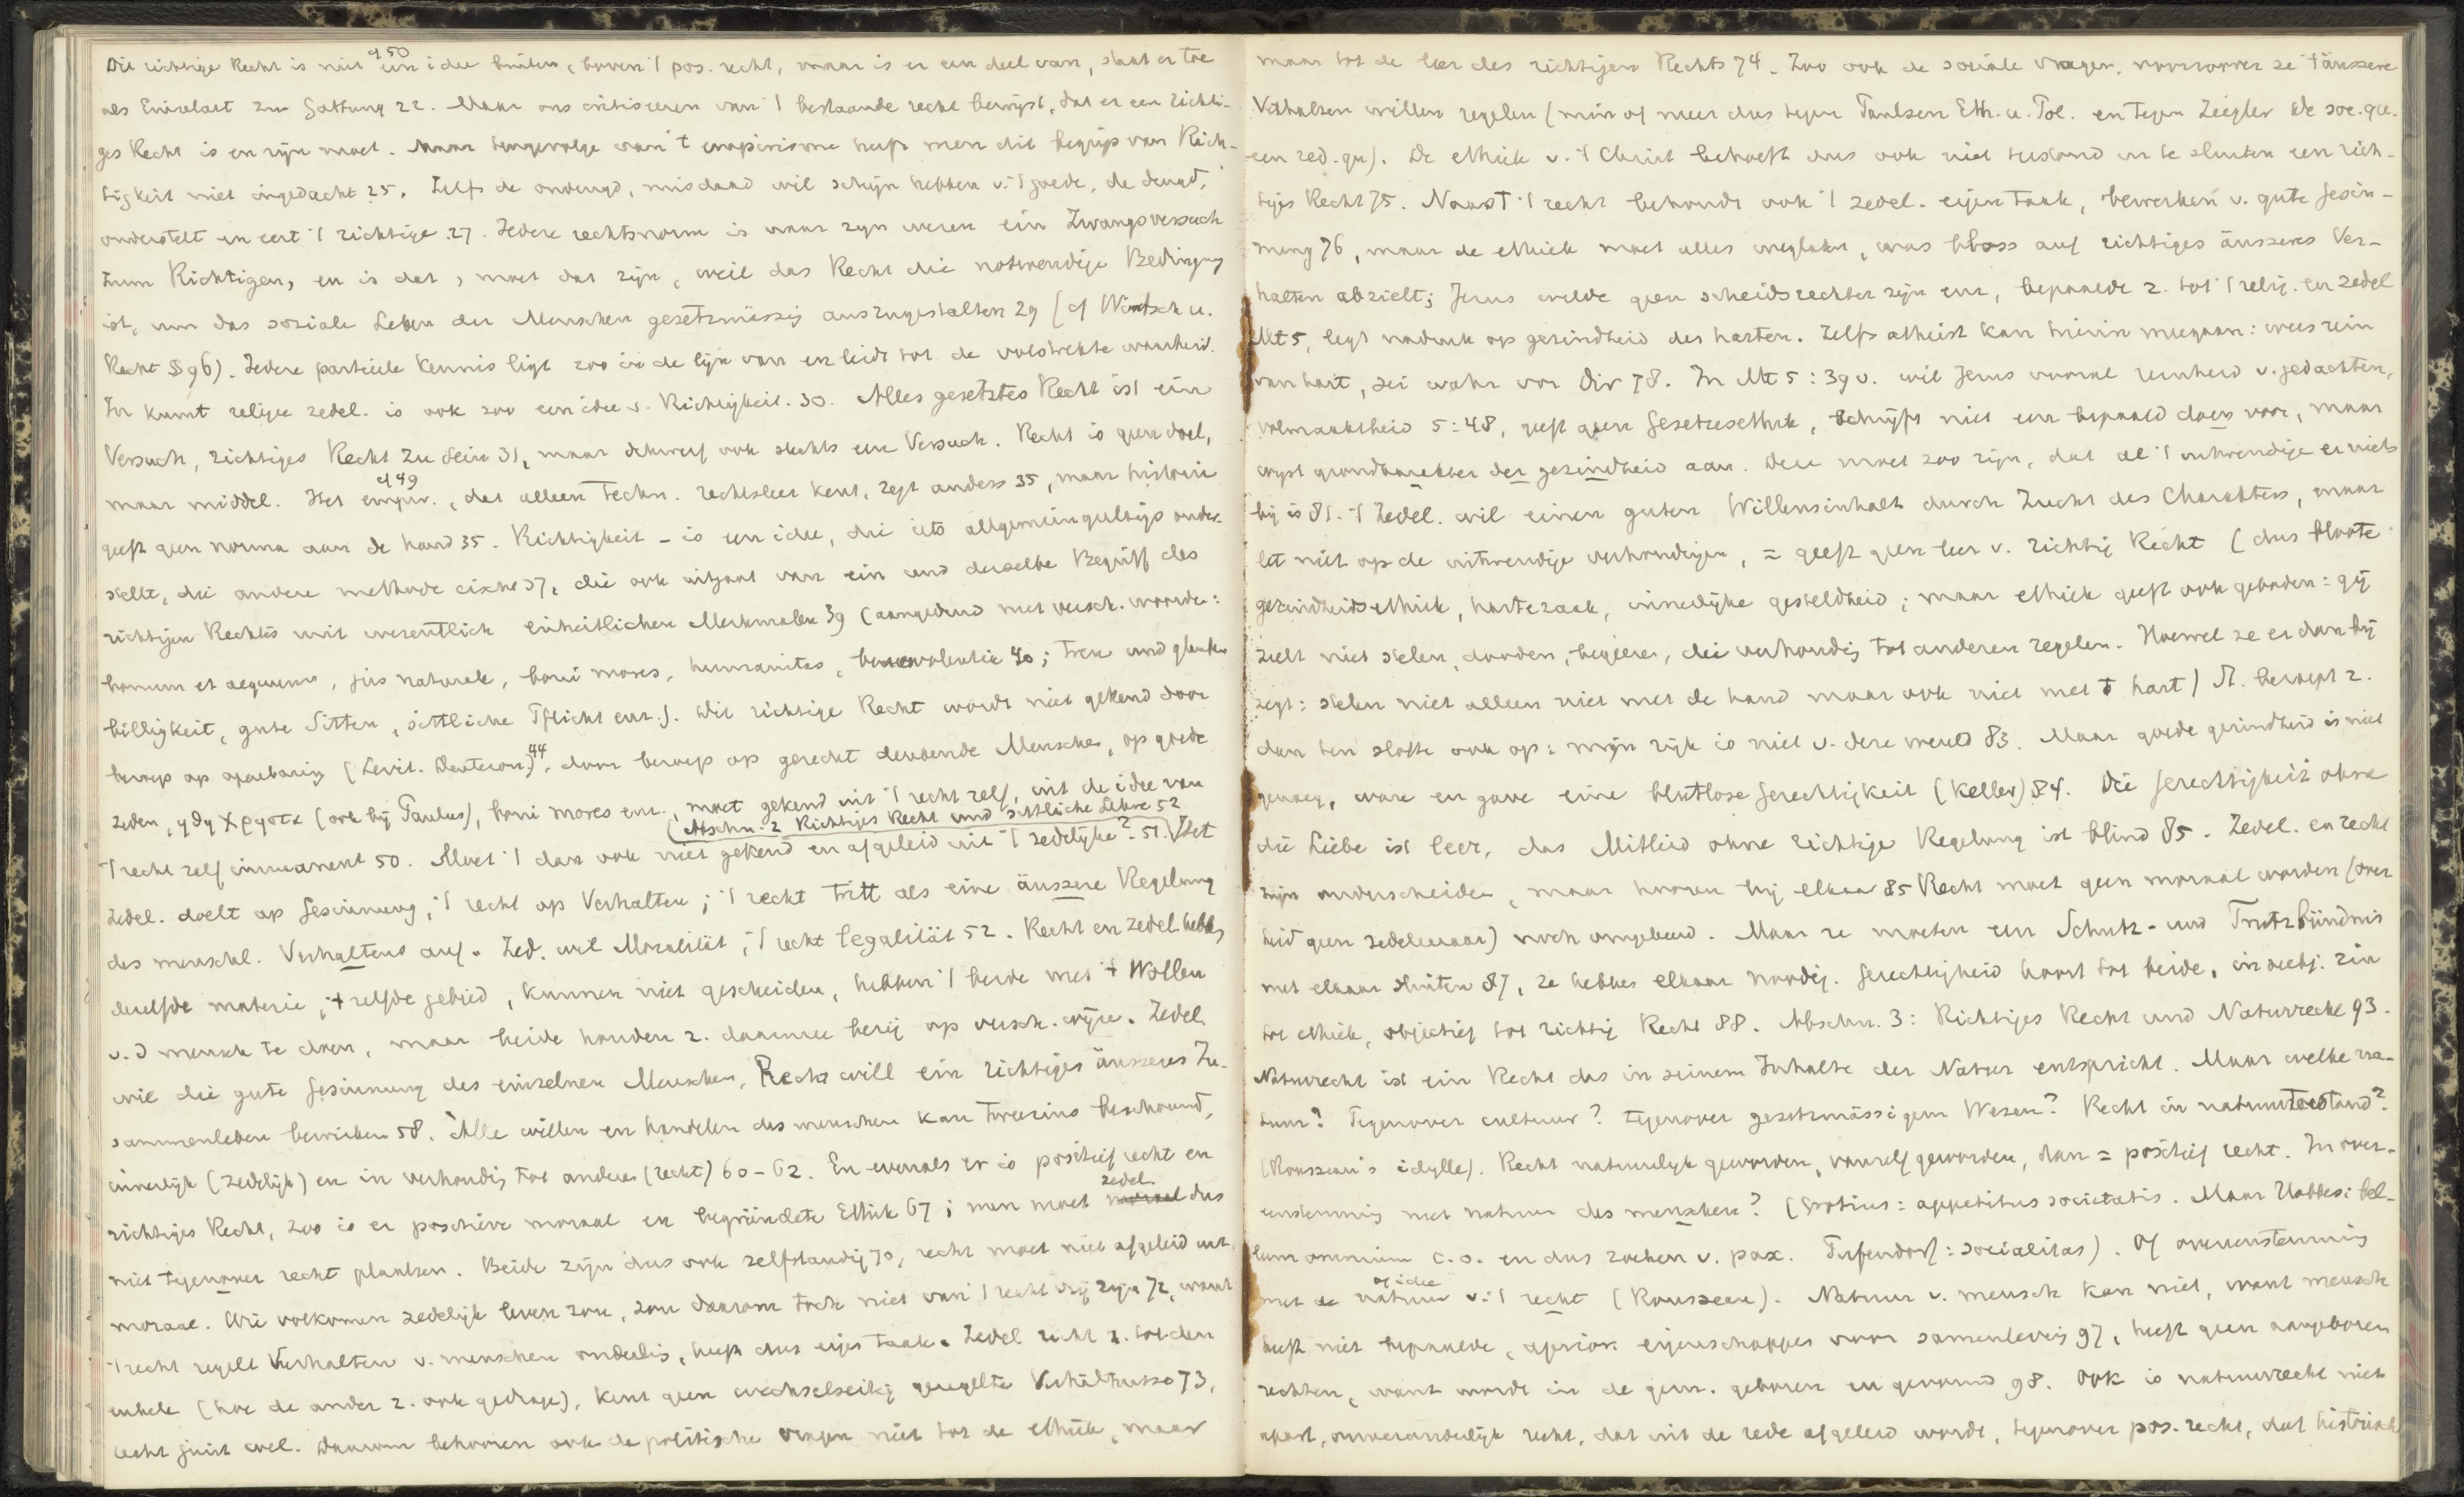 Die richtige Recht is niet een idee buiten, boven 't pos. recht, maar is er een deel van, staat er toe
cf 50
als Einzelart zur Gattung 22. Maar ons critiseeren van 't bestaande recht bewijst, dat er een richti-
ges Recht is en zijn moet. Maar tengevolge van 't empirisme heeft men dit begrip van Rich-
tigkeit niet ingedacht 25. Zelfs de ondeugd, misdaad wil schijn hebben v. 't goede, de deugd,
onderstelt en eert 't richtige 27. Iedere rechtsnorm is naar zijn wezen ein Zwangsversuch
zum Richtigen, en is dat, moet dat zijn, weil das Recht die notwendige Bedingung
ist, um das soziale Leben der Menschen gesetzmässig auszugestalten 29 (cf Wirtsch u.
Recht § 96). Iedere partieele kennis ligt zoo in de lijn van en leidt tot de volstrekte waarheid.
In kunst religie zedel. is ook zoo een idee v. Richtigkeit. 30. Alles gesetztes Recht ist ein
Versuch, richtiges Recht zu sein 31, maar daarom ook slechts een Versuch. Recht is geen doel,
maar middel. Het empir., dat alleen techn. rechtsleer kent, zegt anders 35, maar historie
cf 49
geeft geen norma aan de hand 35. Richtigkeit is een idee, die iets allgemeingültigs onder-
stelt, die andere methode eischt 37, die ook uitgaat van ein und derselbe Begriff des
richtigen Rechtes mit wesentlich einheitlichen Merkmalen 39 (aangeduid met versch. woorden:
bonum et aequum, jus naturale, boni mores, humanitas, benevolentia 40; treu und glauben
billigkeit, gute Sitten, sittliche Pflicht enz.). Dit richtige Recht wordt niet gekend door
beroep op openbaring (Levit. Deuteron.) 44, door beroep op gerecht denkende Menschen, op goede
zeden, ηδη χρηστα (ook bij Paulus), boni mores enz., moet gekend uit 't recht zelf, uit de idee van
(Abschn. 2 Richtiges Recht und sittliche Lehre 52
't recht zelf immanent 50. Moet 't dan ook niet gekend en afgeleid uit 't zedelijke? 51. Het
zedel. doelt op Gesinnung, 't recht op Verhalten; 't recht tritt als eine äussere Regelung
des menschl. Verhaltens auf. Zed. wil Moralität, 't recht legalität 52. Recht en zedel. hebben
dezelfde materie, 't zelfde gebied, kunnen niet gescheiden, hebben 't beide met 't Wollen
v. d mensch te doen, maar beide houden z. daarmee bezig op versch. wijze. Zedel.
wil die gute Gesinnung des einzelnen Menschen, Recht will ein richtiges äusseres Zu-
sammenleben bewirken 58. Alle willen en handelen des menschen kan tweezins beschouwd,
innerlijk (zedelijk) en in verhouding tot anderen (recht) 60-62. En evenals er is positief recht en
richtiges Recht, zoo is er positieve moraal en begründete Ethik 67; men moet zedel. dus
niet tegenover recht plaatsen. Beide zijn dus ook zelfstandig 70, recht moet niet afgeleid uit
moraal. Wie volkomen zedelijk leven zou, zou daarom toch niet van 't recht vrij zijn 72, want
't recht regelt Verhalten v. menschen onderling, heeft dus eigen taak. Zedel. richt z. tot den
enkele (hoe de ander z. ook gedrage), kent geen wechselseitig geregelte Verhältnisse 73,
recht juist wel. Daarom behooren ook de politische vragen niet tot de ethiek, maar
maar tot de leer des richtigen Rechts 74. Zoo ook de sociale vragen, voorzoover ze 't äussere
Verhalten willen regelen (min of meer dus tegen Paulsen Eth. u. Pol. en tegen Ziegler de soc. qu.
een zed. qu). De ethiek v. 't Christ behoeft dus ook niet tusschen in te sluiten een rich-
tiges Recht 75. Naast 't recht behoudt ook 't zedel. eigen taak, bewerken v. gute Gesin-
nung 76, maar de ethiek moet alles weglaten, was bloss auf richtiges äusseres Ver-
halten abzielt; Jezus wilde geen scheidsrechter zijn enz, bepaalde z. tot 't relig. en zedel
Mt 5, legt nadruk op gezindheid des harten. Zelfs atheist kan hierin meegaan: wees rein
van hart, sei wahr vor Dir 78. In Mt 5:39 v. wil Jezus vooral reinheid v. gedachten,
volmaaktheid 5:48, geeft geen Gesetzesethik, schrijft niet een bepaald doen voor, maar
wijst grondkarakter der gezindheid aan. Deze moet zoo zijn, dat al 't uitwendige er niets
bij is 81. 't Zedel. wil einen guten Willensinhalt durch Zucht des Charakters, maar
let niet op de uitwendige verhoudingen, = geeft geen leer v. richtig Recht (dus bloote
gezindheidsethiek, hartezaak, innerlijke gesteldheid; maar ethiek geeft ook geboden: gij
zult niet stelen, dooden, begeeren, die verhouding tot anderen regelen. Hoewel ze er dan bij
zegt: stelen niet alleen niet met de hand maar ook niet met 't hart) St. beroept z.
dan ten slotte ook op: mijn rijk is niet v. deze wereld 83. Maar goede gezindheid is niet
genoeg, ware en gave eine blutlose Gerechtigkeit (Keller) 84. Die Gerechtigkeit ohne
die Liebe ist leer, das Mitleid ohne richtige Regelung ist blind 85. Zedel. en recht
zijn onderscheiden, maar hooren bij elkaar 85 Recht moet geen moraal worden (over
heid geen zedeleeraar) noch omgekeerd. Maar ze moeten een Schutz- und Trutzbündnis
met elkaar sluiten 87, ze hebben elkaar noodig. Gerechtigheid hoort tot beide, in subj. zin
tot ethiek, objectief tot richtig Recht 88. Abschn. 3: Richtiges Recht und Naturrecht 93.
Naturrecht ist ein Recht das in seinem Inhalte der Natur entspricht. Maar welke na-
tuur? Tegenover cultuur? tegenover gesetzmässigem Wesen? Recht in natuurtoestand?
(Rousseau's idylle). Recht natuurlijk geworden, vanzelf geworden, dan = positief recht. In over-
eenstemming met natuur des menschen? (Grotius: appetitus societatis. Maar Hobbes: bel-
lum omnium c. o. en dus zoeken v. pax. Pufendorf: socialitas). Of overeenstemming
met de natuur v. 't recht (Rousseau). Natuur v. mensch kan niet, want mensch
of idee
heeft niet bepaalde, apriori eigenschappen voor samenleving 97, heeft geen aangeboren
rechten, want wordt in de gem. geboren en gevormd 98. Ook is natuurrecht niet
apart, onveranderlijk recht, dat uit de rede afgeleid wordt, tegenover pos. recht, dat historisch